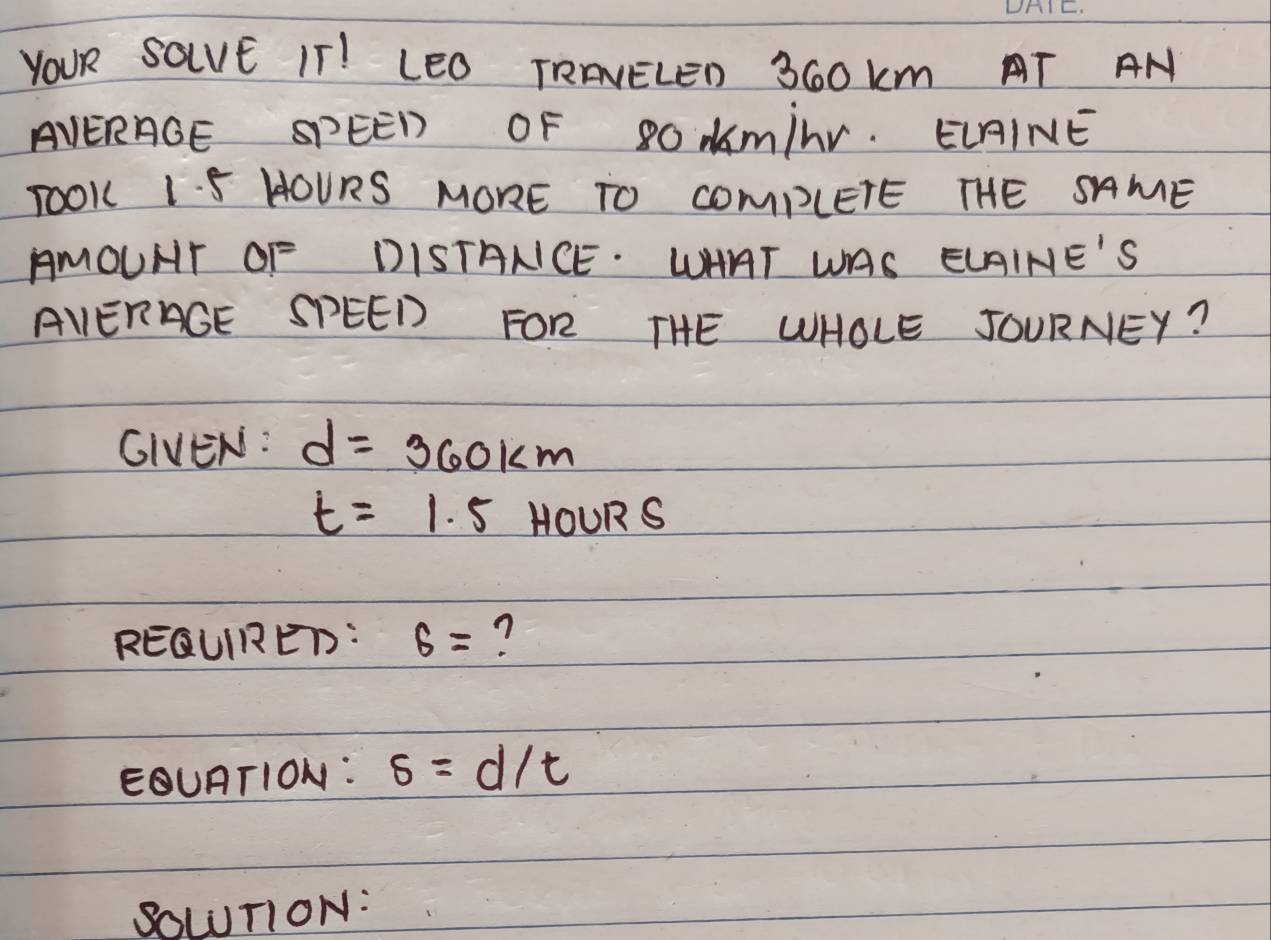 DATE.
YOUR SOLVE IT! LEO TRAVELED 360 km AT AN
AVERAGE SPEED OF 80 km/hr. ELAINE
TOOK 1.5 HOURS MORE TO COMPLETE THE SAME
AMOUNT OF DISTANCE. WHAT WAS ELAINE'S
AVERAGE SPEED FOR THE WHOLE JOURNEY?
GIVEN: d = 360km
t = 1.5 HOURS
REQUIRED: s = ?
EQUATION: s = d/t
SOLUTION: